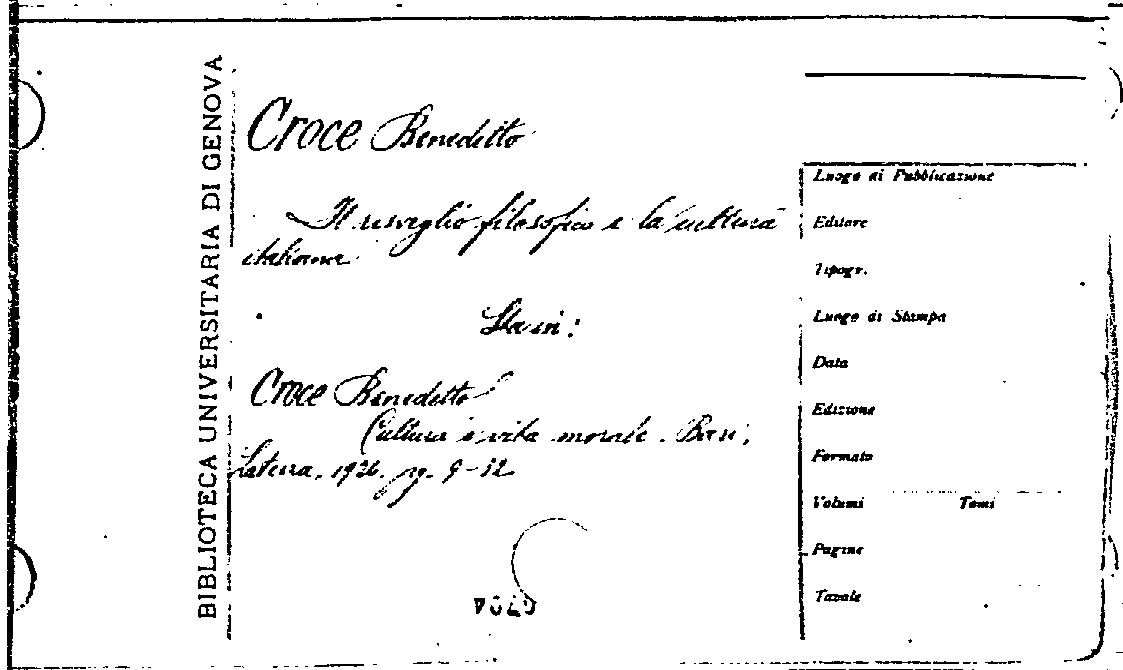 BIBLIOTECA UNIVERSITARIA DI GENOVA
Croce Benedetto
Il risveglio filosofico e la cultura
italiana.
Croce Benedetto
Cultura e vita morale. Bari,
Laterza, 1926. pg. 9-32
Luogo di Pubblicazione
Editore
Tipogr.
Luogo di Stampa
Data
Edizione
Formato
Volumi Tomi
Pagine
Tavole